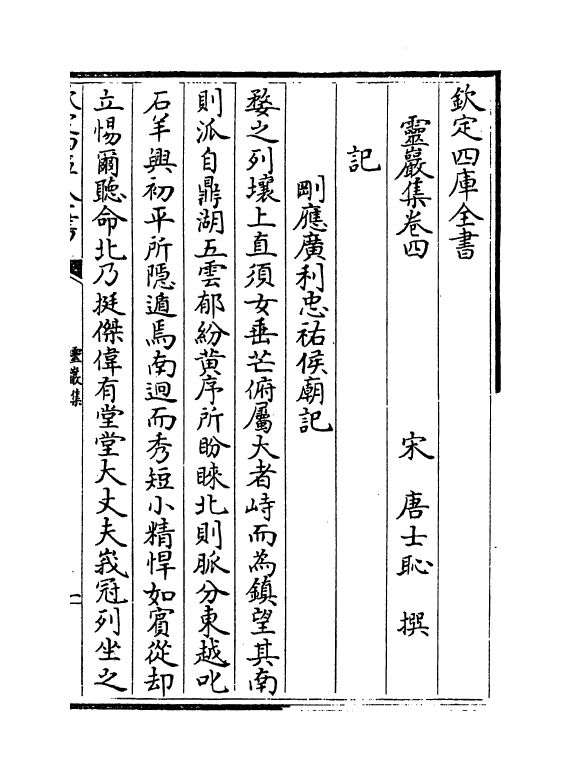 欽定四庫全書
靈巖集卷四
宋　唐士恥　撰
記
剛應廣利忠祐侯廟記
婺之列壤上直須女垂芒俯屬大者峙而為鎮望其南
則派自鼎湖五雲郁紛黄序所盼睞北則脈分東越叱
石羊興初平所隱遁焉南迴而秀短小精悍如賓從却
立惕爾聽命北乃挺傑偉有堂堂大丈夫峩冠列坐之
靈巖集
一